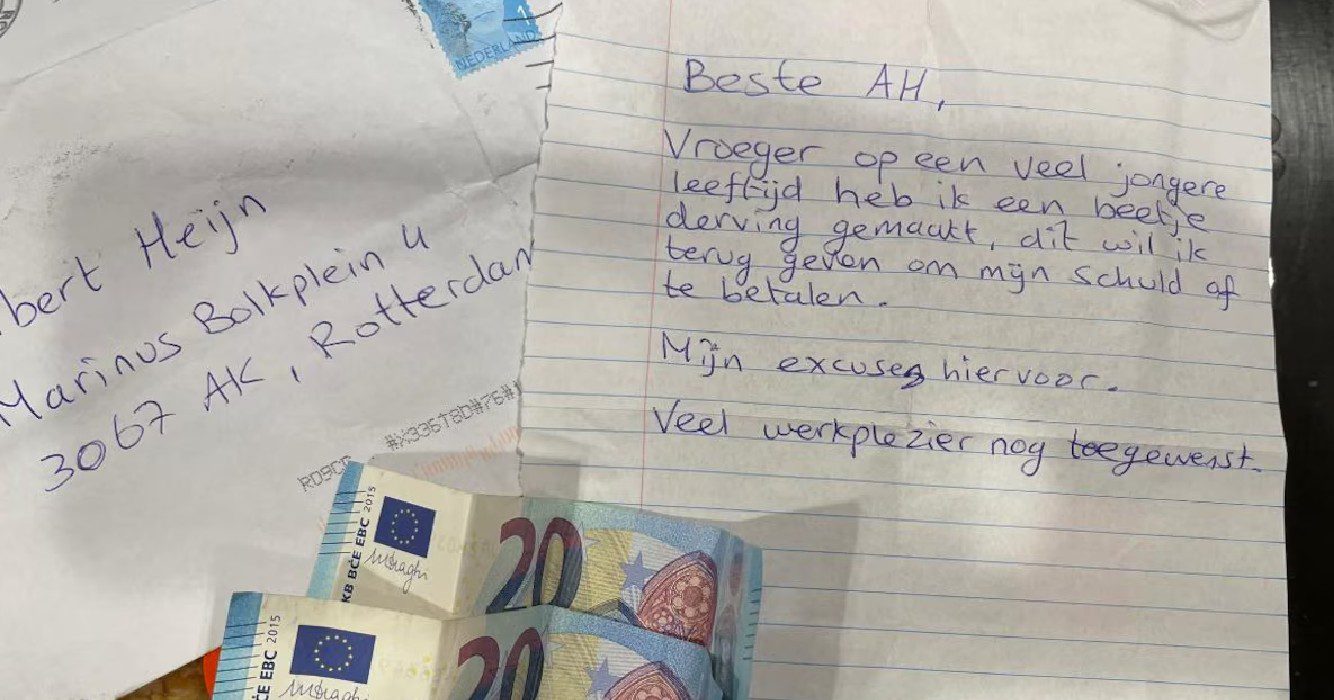 1
NEDERLAND
bert Heijn
Marinus Bolkplein 4
3067 AK, Rotterdam
Beste AH,
Vroeger op een veel jongere
leeftijd heb ik een beetje
derving gemaakt, dit wil ik
terug geven om mijn schuld af
te betalen.
Mijn excuses hiervoor.
Veel werkplezier nog toegewenst.
BCE EBC 2015
20
EBC 2015
20